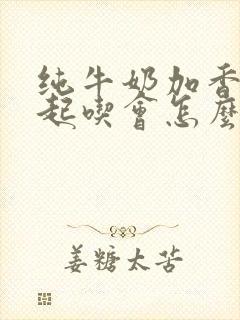 纯牛奶加香
起喫會怎麼
姜糖太苦